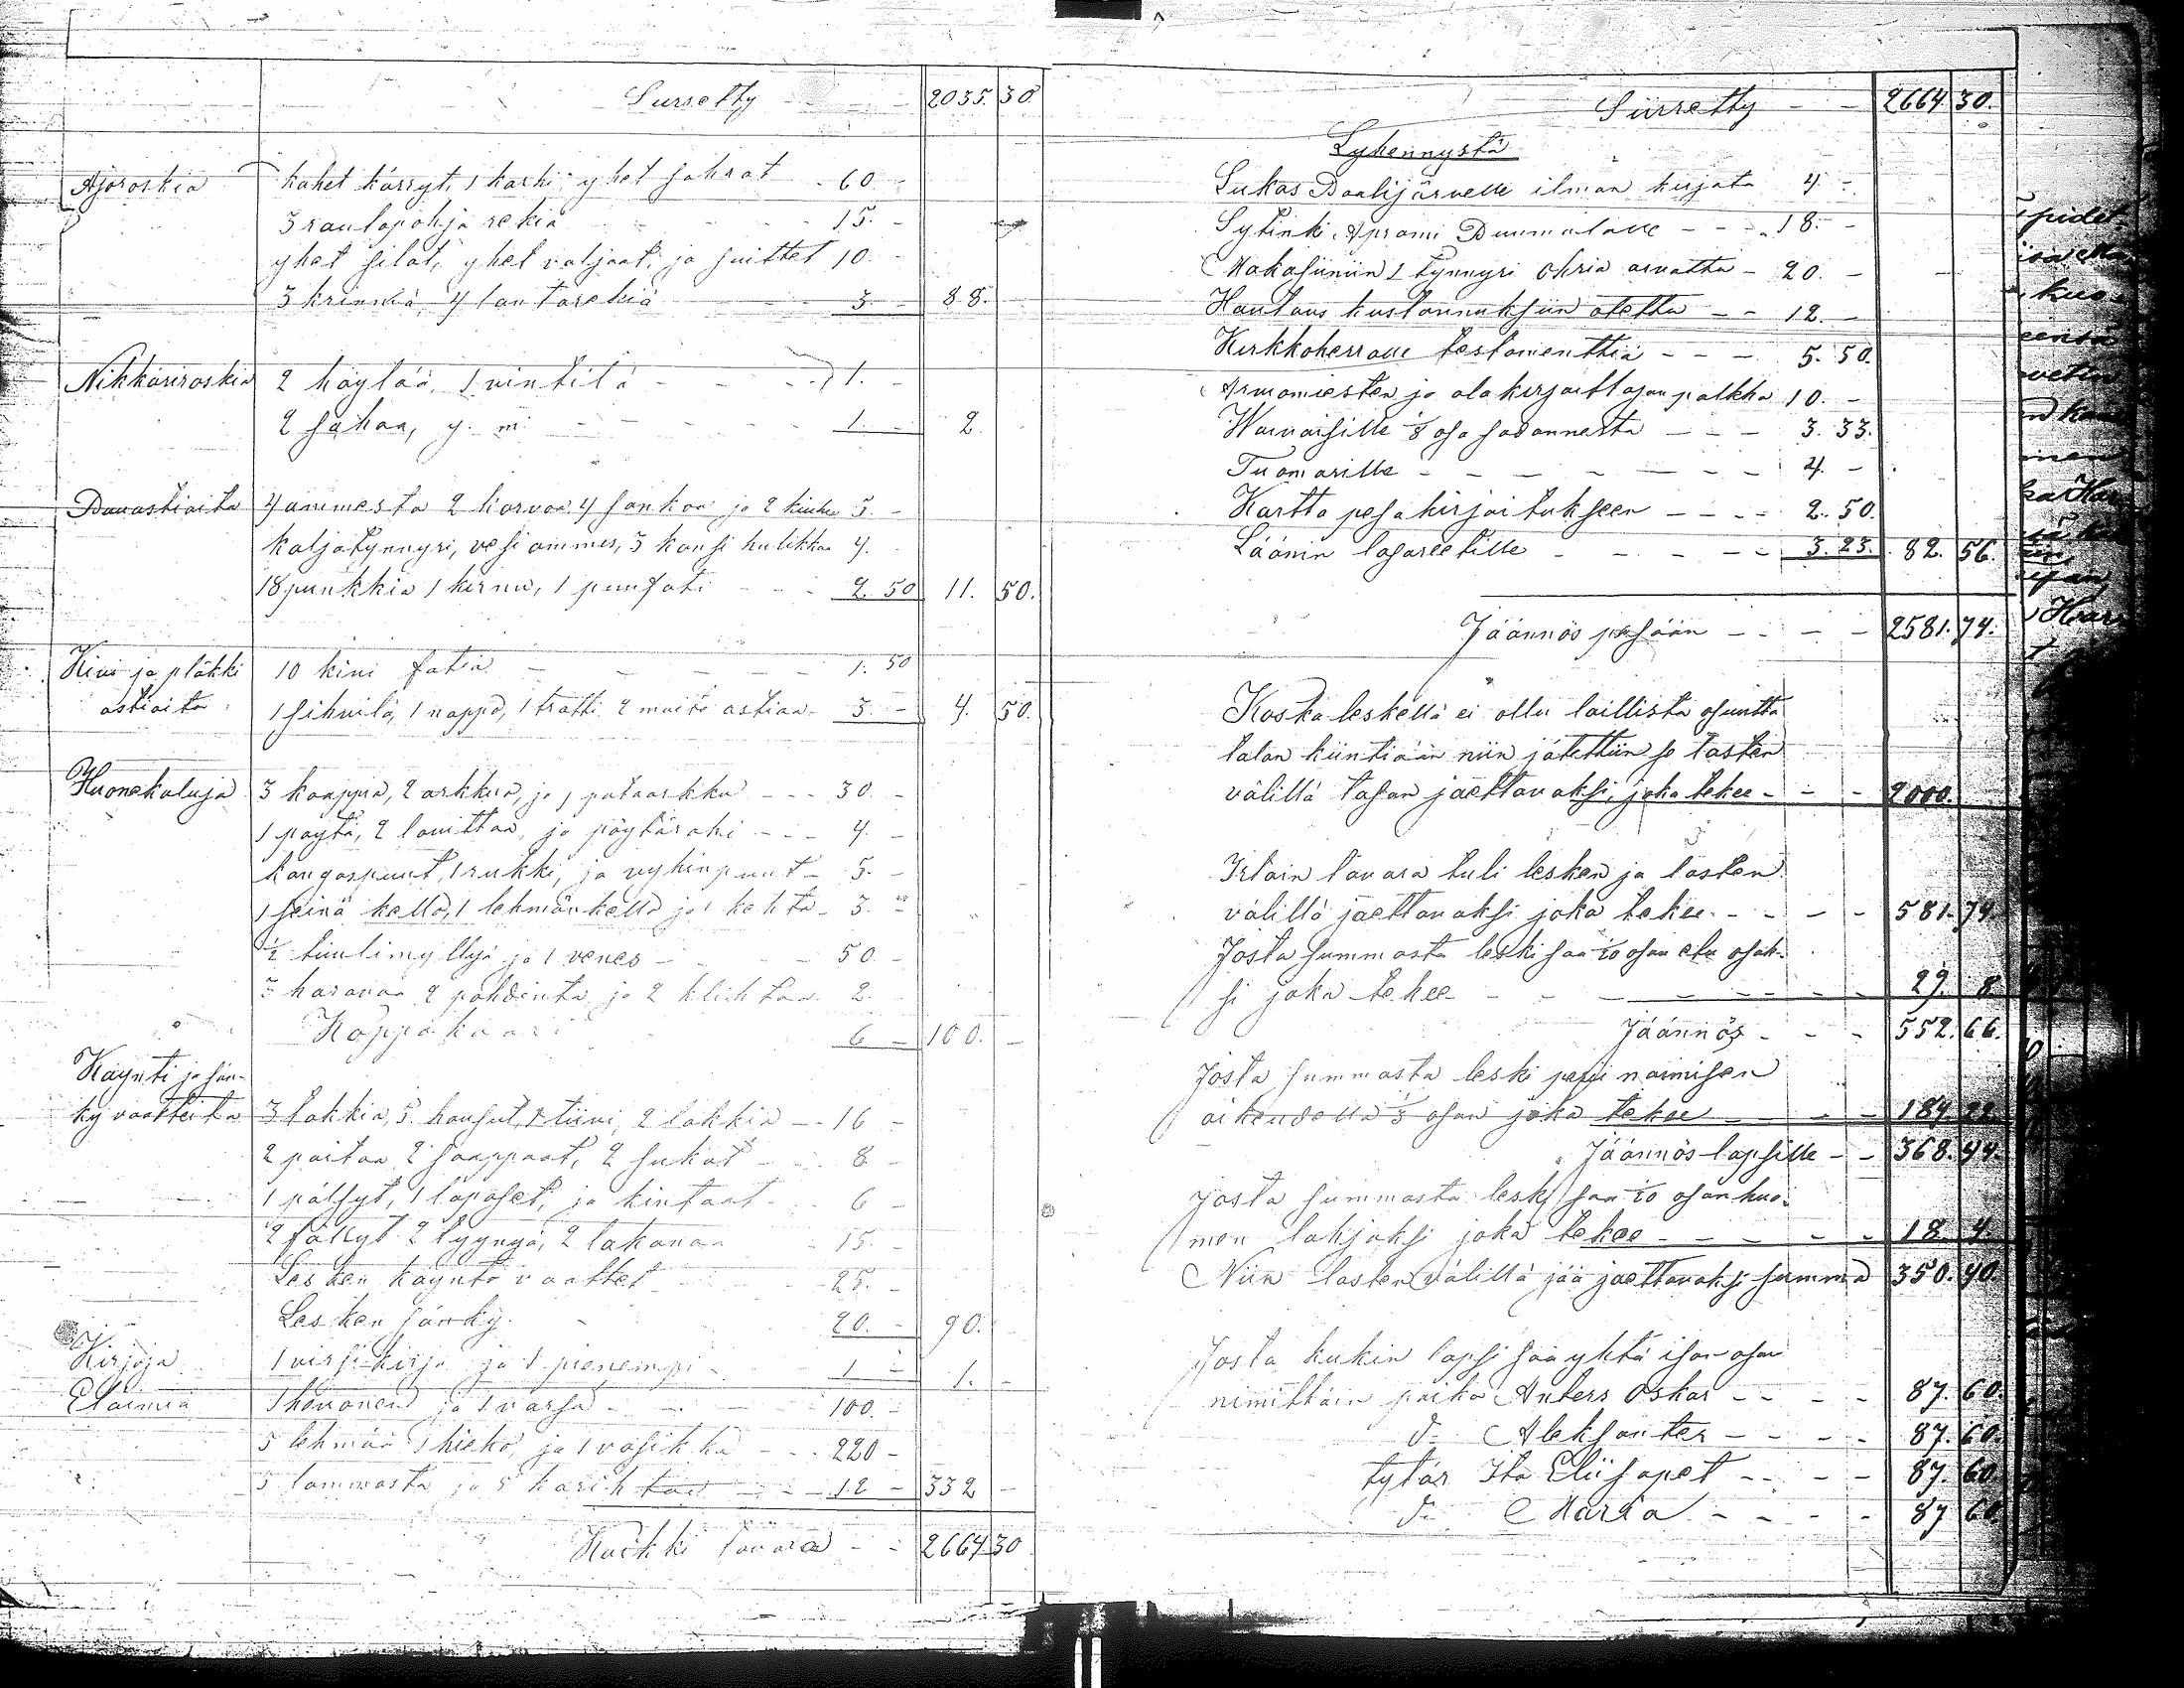 Siirretty - - 2035. 30.
Ajoroskia kahet kärryt, 1 karhi, yhet sahrat - 60 -
3 rautapohja rekiä - - - 15. -
yhet silat, yhet valjaat, ja suittet 10. -
3 krinniä 4 lantarekiä - - 3. - 88.
Nikkariroskia 2 höylää, 1 vintilä - - - 1. -
2 sahaa, y. m. - - - - 1. - 2.
Puuastioita 4 ammesta 2 korvoa 4 sankoa ja 2 5. -
kaljatynnyri, vesi ammes, 3 kansi kulikkaa 4.
18 punkkia 1 kirnu, 1 puufati - - - 2. 50 11. 50.
Kivi ja pläkki 10 kivi fatia - - - - 1. 50
astioita 1 sihvilä, 1 nappo, 1 tratti 2 muita astiaa - 3. - 4. 50.
Huonekaluja 3 kaappia, 2 arkkua, ja 1 pataarkku - - - 30. -
1 pöytä, 2 lavittaa, ja pöytärahi - - - 4. -
kangaspuut, 1 rukki, ja vyhinpuut - 5. -
1 seinä kello, 1 lehmänkello ja 1 kehto - 3. -
1/2 tuulimyllyä ja 1 venes - - - 50. -
3 haravaa 2 pohdinta ja 2 klihtaa 2.
Koppäkaari 6 - 100. -
Käynti ja sän-
kyvaatteita 3 takkia, 5 housut, 1 liivi, 2 lakkia - - 16 -
2 paitaa 2 saappaat, 2 sukat - - 8 -
1 pälsyt, 1 lapaset, ja kintaat - - 6 -
2 fällyt 2 tyynyä, 2 lakanaa - 15. -
Lesken käynto vaattet 25. -
Lesken sänky - 20. - 90.
Kirjoja 1 virsikirja ja 1 pienempi - 1 - 1. -
Elaimia 1 hevonen ja 1 varsa - - - 100. -
5 lehmää 1 hieho, ja 1 vasikka - - 220 -
5 lammasta ja 5 karihtaa - - - 12 - 332 -
Kaikki tavara - - 2664. 30
Siirretty - - 2664. 30.
Lyhennystä
Lukas Paalijärvelle ilman kirjata 4. -
Sytinki Aprami - - - 18. -
Makasiiniin 1 tynnyri ohria arvattu - 20. -
Hautaus kustannuksiin otettu - - 12. -
Kirkkoherralle testamenttia - - - 5. 50.
Arviomiesten ja alakirjoittajan palkka 10. -
Waivaisille 1/8 osa sadannesta - - - 3. 33.
Tuomarille - - - - - - 4. -
Kartta pesäkirjoitukseen - - - - 2. 50.
Läänin lasareetille - - - - - 3. 23. 82. 56.
Jäännös pesään - - - - 2581. 74.
Koska leskellä ei ollu laillista osuutta
talan kiintiään niin jätettiin se lasten
välillä tasan jaettavaksi, joka tekee - - - 2000.
Irtain tavara tuli lesken ja lasten
välillä jaettavaksi joka tekee - - - - 581. 74.
Josta summasta leski saa 1/20 osan etu osak-
si joka tekee - - - - - - - 29. 8.
Jäännös - - - 552. 66.
Josta summasta leski naimisen
oikeudella 1/3 osan joka tekee - - - 184. 22.
Jäännös lapsille - - 368. 44.
Josta summasta leski saa 1/20 osan huo-
men lahjaksi joka tekee - - - - - 18. 4.
Niin lasten välillä jää jaettavaksi summa 350. 40.
Josta kukin lapsi saa yhtä ison osan
nimittäin poika Anters Oskar - - - - 87. 60.
d:o Aleksanter - - - - 87. 60.
tytär Ita Eliisapet - - - - 87. 60.
d:o Maria - - - - 87 60.